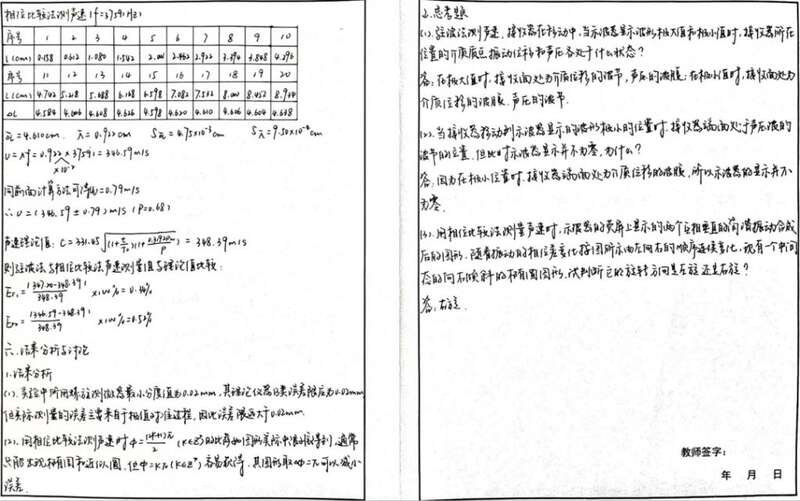 相位比较法测声速 (f=37591Hz)
序号 1 2 3 4 5 6 7 8 9 10
L(cm) 0.158 0.612 1.080 1.542 2.001 2.462 2.922 3.394 3.848 4.296
序号 11 12 13 14 15 16 17 18 19 20
L(cm) 4.742 5.218 5.688 6.148 6.598 7.082 7.532 8.001 8.452 8.934
ΔL 4.584 4.606 4.608 4.606 4.598 4.620 4.610 4.606 4.604 4.638
=4.610cm. =0.922cm =4.75×10⁻³cm =9.50×10⁻⁴cm
υ=λf=0.922×37591=346.59m/s
×10⁻²
同前面计算方法可得 =0.79m/s
∴υ=(346.59±0.79)m/s (P=0.68)
声速理论值: C=331.45 =348.39m/s
则驻波法与相位比较法声速测量值与理论值比较:
Er₁= ×100%=0.34%
Er₂= |346.59-348.39| / 348.39 ×100%=0.52%
六、结果分析与讨论
1.结果分析
(1).实验中所用螺旋测微器最小分度值为0.02mm,其理论仪器B类误差限应为0.02mm
但实际测量的误差主要来自于极值对准过程,因此误差限远大于0.02mm.
(2).用相位比较法测声速时φ=(2k+1)π/2 (k∈Z)的比 图形实际中很难得到,通常
只能出现椭圆和近似圆,但φ=kπ(k∈Z)容易获得,其图形取 φ=π可以减小
误差.
2.思考题
(1).驻波法测声速,接收器在移动中,当示波器显示波形极大值和极小值时,接收器所在
位置的介质质点振动位移和声压各处于什么状态?
答:在极大值时,接收面处为介质位移的波节,声压的波腹;在极小值时,接收面处为
介质位移的波腹,声压的波节.
(2).当接收器移动到示波器显示的波形极小的位置时,接收器端面处于声压波的
波节的位置,但此时示波器显示并不为零,为什么?
答:因为在极小位置时,接收器端面处为介质位移的波腹,所以示波器的显示并不
为零.
(3).用相位比较法测量声速时,示波器的荧屏上显示的两个互相垂直的简谐振动合成
后的图形,随着振动的相位差变化将图所示由左向右的顺序连续变化,现有一个中间
态的向右倾斜的椭圆图形,试判断它的旋转方向是左旋还是右旋?
答:右旋.
教师签字:
年 月 日